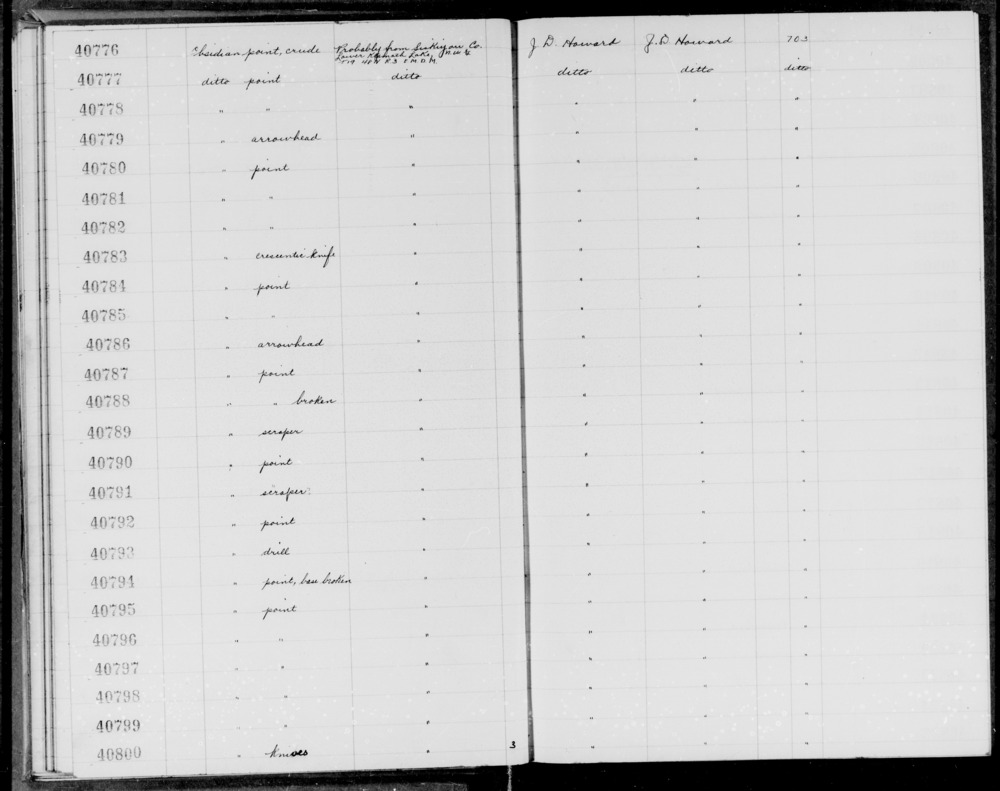 40776 Obsidian point, crude Probably from Siskiyou Co. J. D. Howard J. D. Howard 703
Lower Klamath Lake,
T 49 48 N R 3 E M. D. M.
40777 ditto point ditto ditto ditto ditto
40778 " " " " " "
40779 " arrowhead " " " "
40780 " point " " " "
40781 " " " " " "
40782 " " " " " "
40783 " crescentic knife " " " "
40784 " point " " " "
40785 " " " " " "
40786 " arrowhead " " " "
40787 " point " " " "
40788 " " broken " " " "
40789 " scraper " " " "
40790 " point " " " "
40791 " scraper " " " "
40792 " point " " " "
40793 " drill " " " "
40794 " point, base broken " " " "
40795 " point " " " "
40796 " " " " " "
40797 " " " " " "
40798 " " " " " "
40799 " " " " " "
40800 " knives " 3 " " "